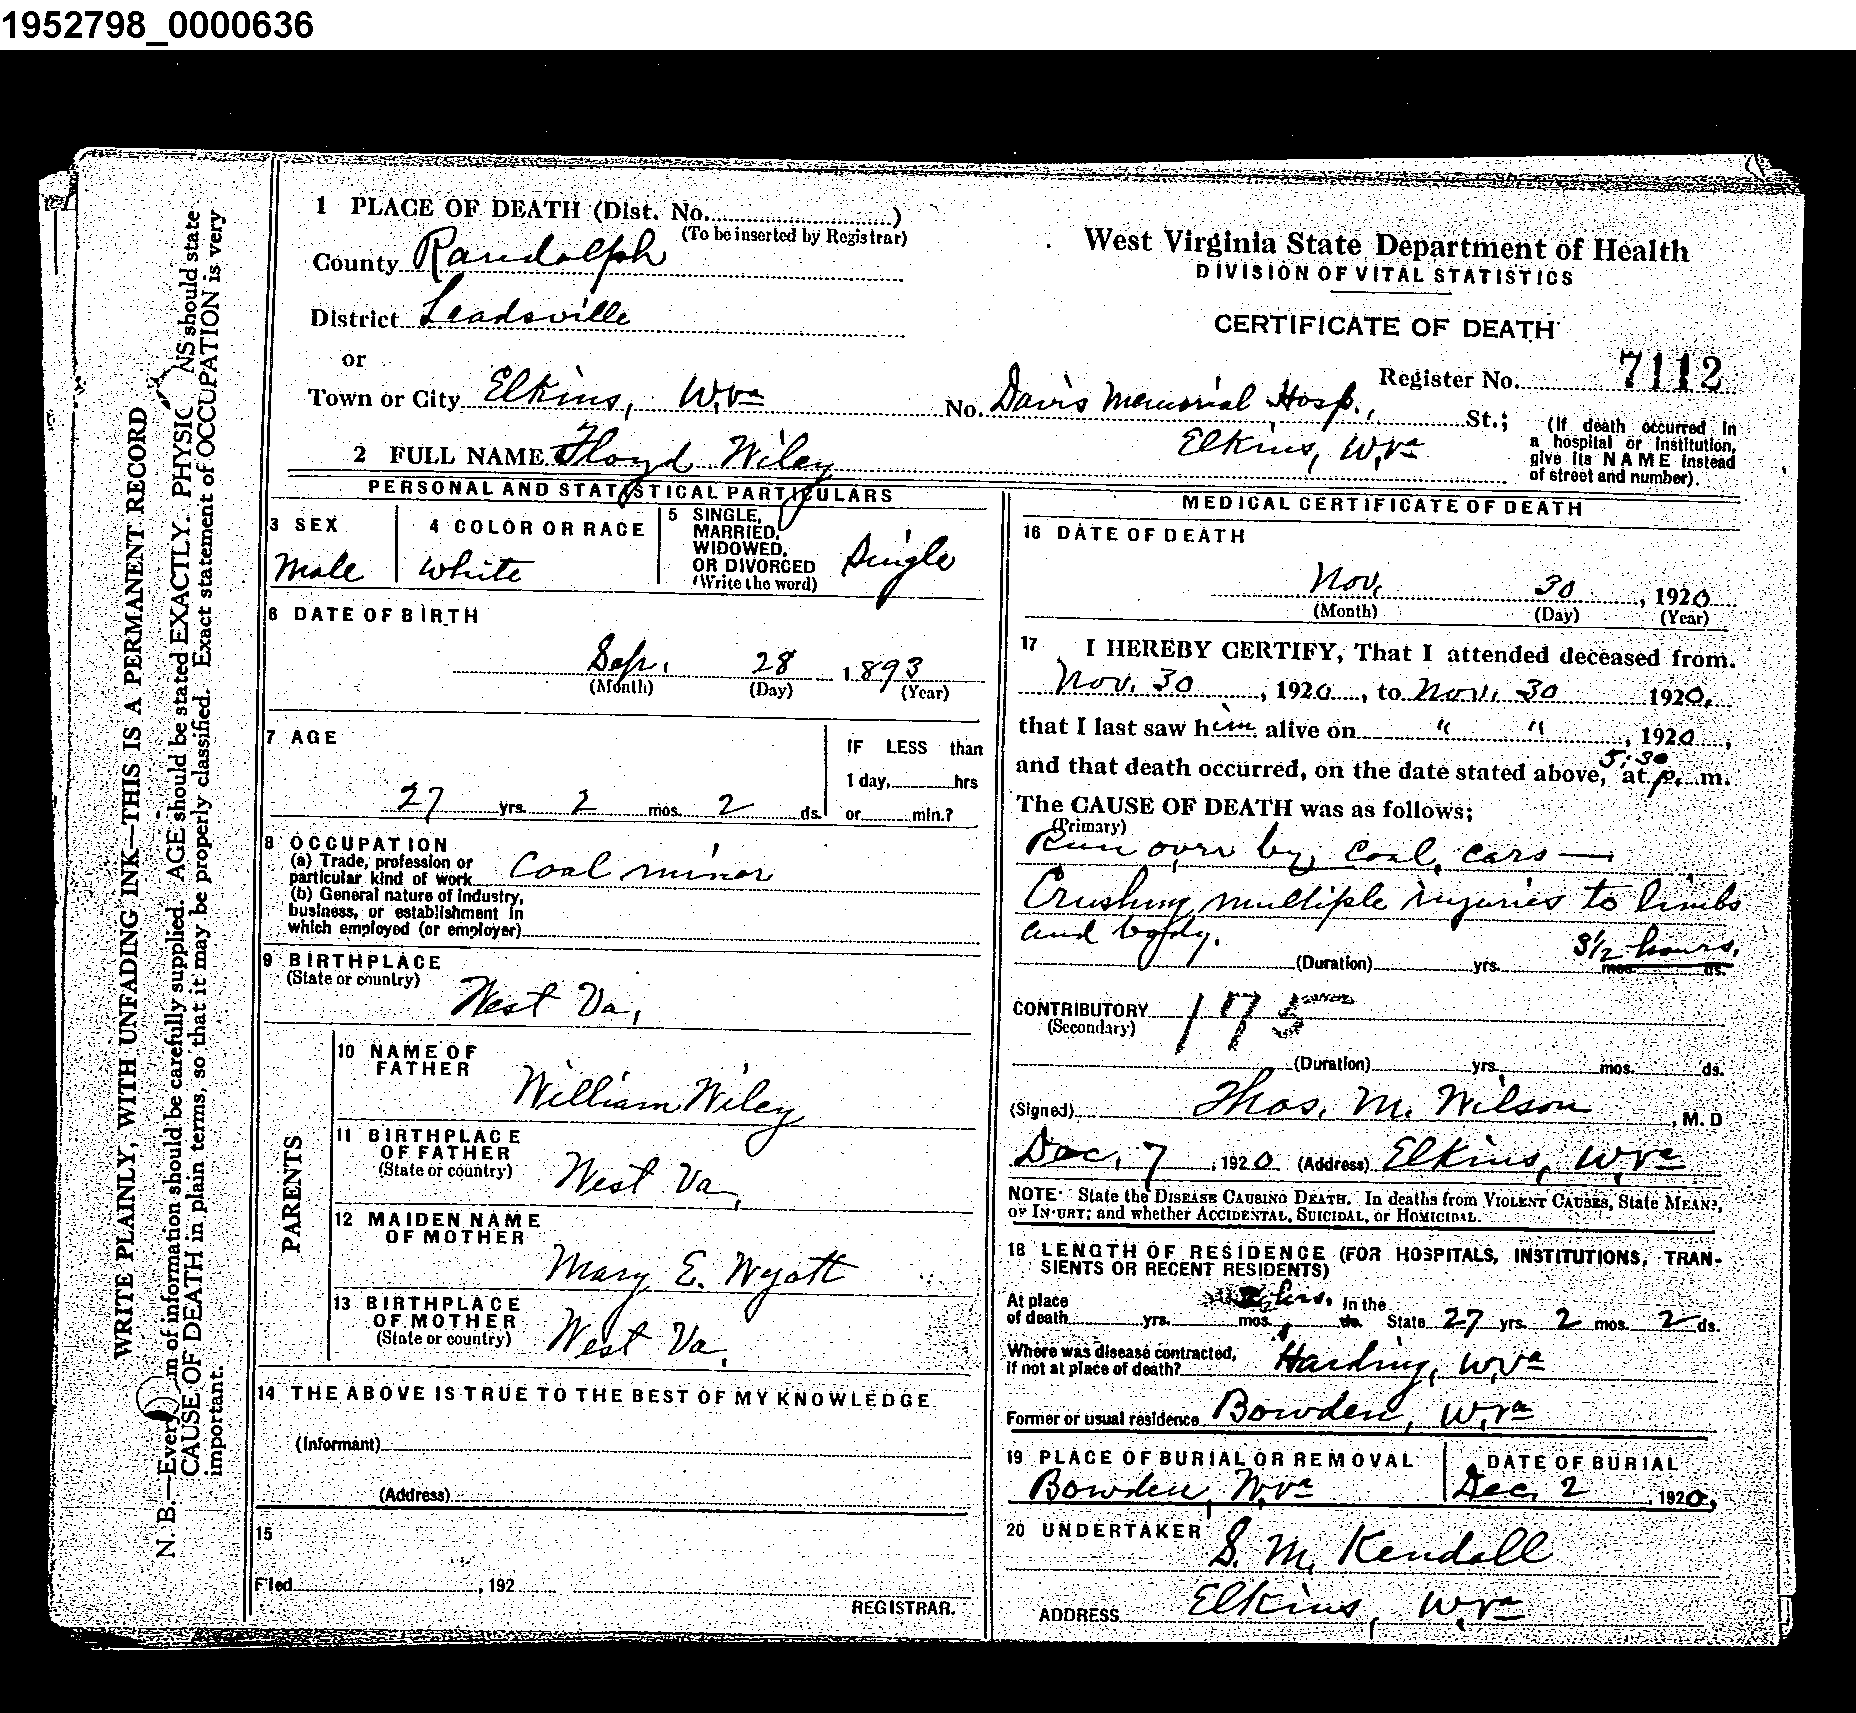 1952798_0000636
WRITE PLAINLY, WITH UNFADING INK—THIS IS A PERMANENT RECORD
N. B.—Every item of information should be carefully supplied. AGE should be stated EXACTLY. PHYSIC NS should state
CAUSE OF DEATH in plain terms, so that it may be properly classified. Exact statement of OCCUPATION is very
important.
1 PLACE OF DEATH (Dist. No. )
(To be inserted by Registrar)
County Randolph
District Leadsville
or
Town or City Elkins, W.Va
West Virginia State Department of Health
DIVISION OF VITAL STATISTICS
CERTIFICATE OF DEATH
Register No. 7112
No. Davis Memorial Hosp., St.;
Elkins, W.Va
(If death occurred in
a hospital or institution,
give its NAME instead
of street and number).
2 FULL NAME Floyd Wiley
PERSONAL AND STATISTICAL PARTICULARS
3 SEX
Male
4 COLOR OR RACE
White
5 SINGLE,
MARRIED,
WIDOWED,
OR DIVORCED
(Write the word)
Single
6 DATE OF BIRTH
Sep. 28 1893
(Month) (Day) (Year)
7 AGE
27 yrs. 2 mos. 2 ds.
IF LESS than
1 day, hrs
or min.?
8 OCCUPATION
(a) Trade, profession or
particular kind of work Coal minor
(b) General nature of industry,
business, or establishment in
which employed (or employer)
9 BIRTHPLACE
(State or country)
West Va,
PARENTS
10 NAME OF
FATHER
William Wiley
11 BIRTHPLACE
OF FATHER
(State or country)
West Va,
12 MAIDEN NAME
OF MOTHER
Mary E. Wyatt
13 BIRTHPLACE
OF MOTHER
(State or country)
West Va,
14 THE ABOVE IS TRUE TO THE BEST OF MY KNOWLEDGE
(Informant)
(Address)
15
Filed , 192
REGISTRAR.
MEDICAL CERTIFICATE OF DEATH
16 DATE OF DEATH
Nov. 30, 1920
(Month) (Day) (Year)
17 I HEREBY CERTIFY, That I attended deceased from
Nov. 30, 1920, to Nov. 30 1920,
that I last saw him alive on " ", 1920,
and that death occurred, on the date stated above, at 5:30 p. m.
The CAUSE OF DEATH was as follows;
(Primary)
Run over by coal cars—
Crushing multiple injuries to limbs
and body.
(Duration) yrs. mos. ds. 3½ hours.
CONTRIBUTORY 175
(Secondary)
(Duration) yrs. mos. ds.
(Signed) Thos. M. Wilson, M. D
Dec. 7, 1920 (Address) Elkins, W.Va
NOTE: State the DISEASE CAUSING DEATH. In deaths from VIOLENT CAUSES, State MEANS
OF INJURY; and whether ACCIDENTAL, SUICIDAL, or HOMICIDAL.
18 LENGTH OF RESIDENCE (FOR HOSPITALS, INSTITUTIONS, TRAN-
SIENTS OR RECENT RESIDENTS)
At place
of death yrs. mos. ds. hrs. In the
State 27 yrs. 2 mos. 2 ds.
Where was disease contracted,
if not at place of death? Harding, W.Va
Former or usual residence Bowden, W.Va
19 PLACE OF BURIAL OR REMOVAL
Bowden, W.Va
DATE OF BURIAL
Dec. 2, 1920,
20 UNDERTAKER
S. M. Kendall
ADDRESS Elkins, W.Va